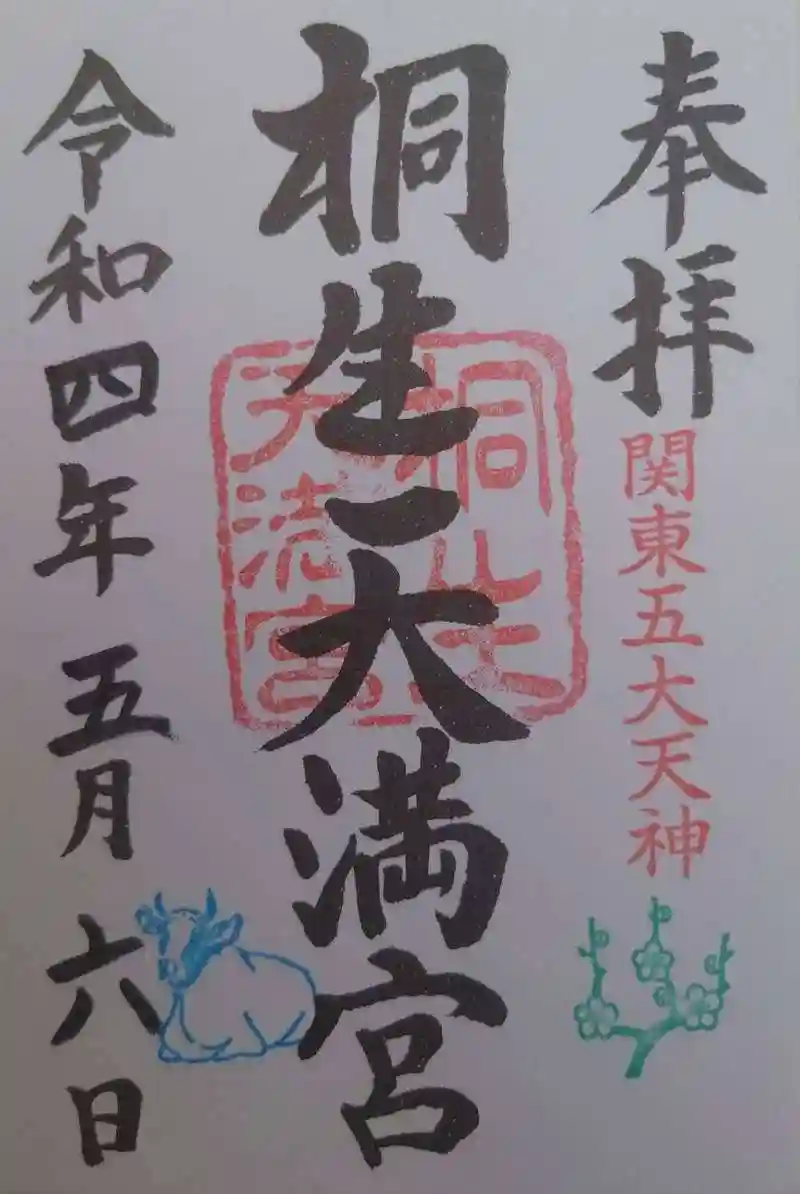 奉拝
関東五大天神
桐生天満宮
桐生
天満宮
令和四年 五月 六日